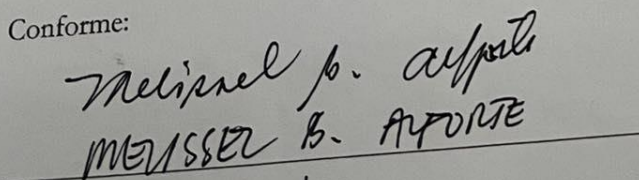 Conforme:
Melissel B. Alforte
MELISSEL B. ALFORTE